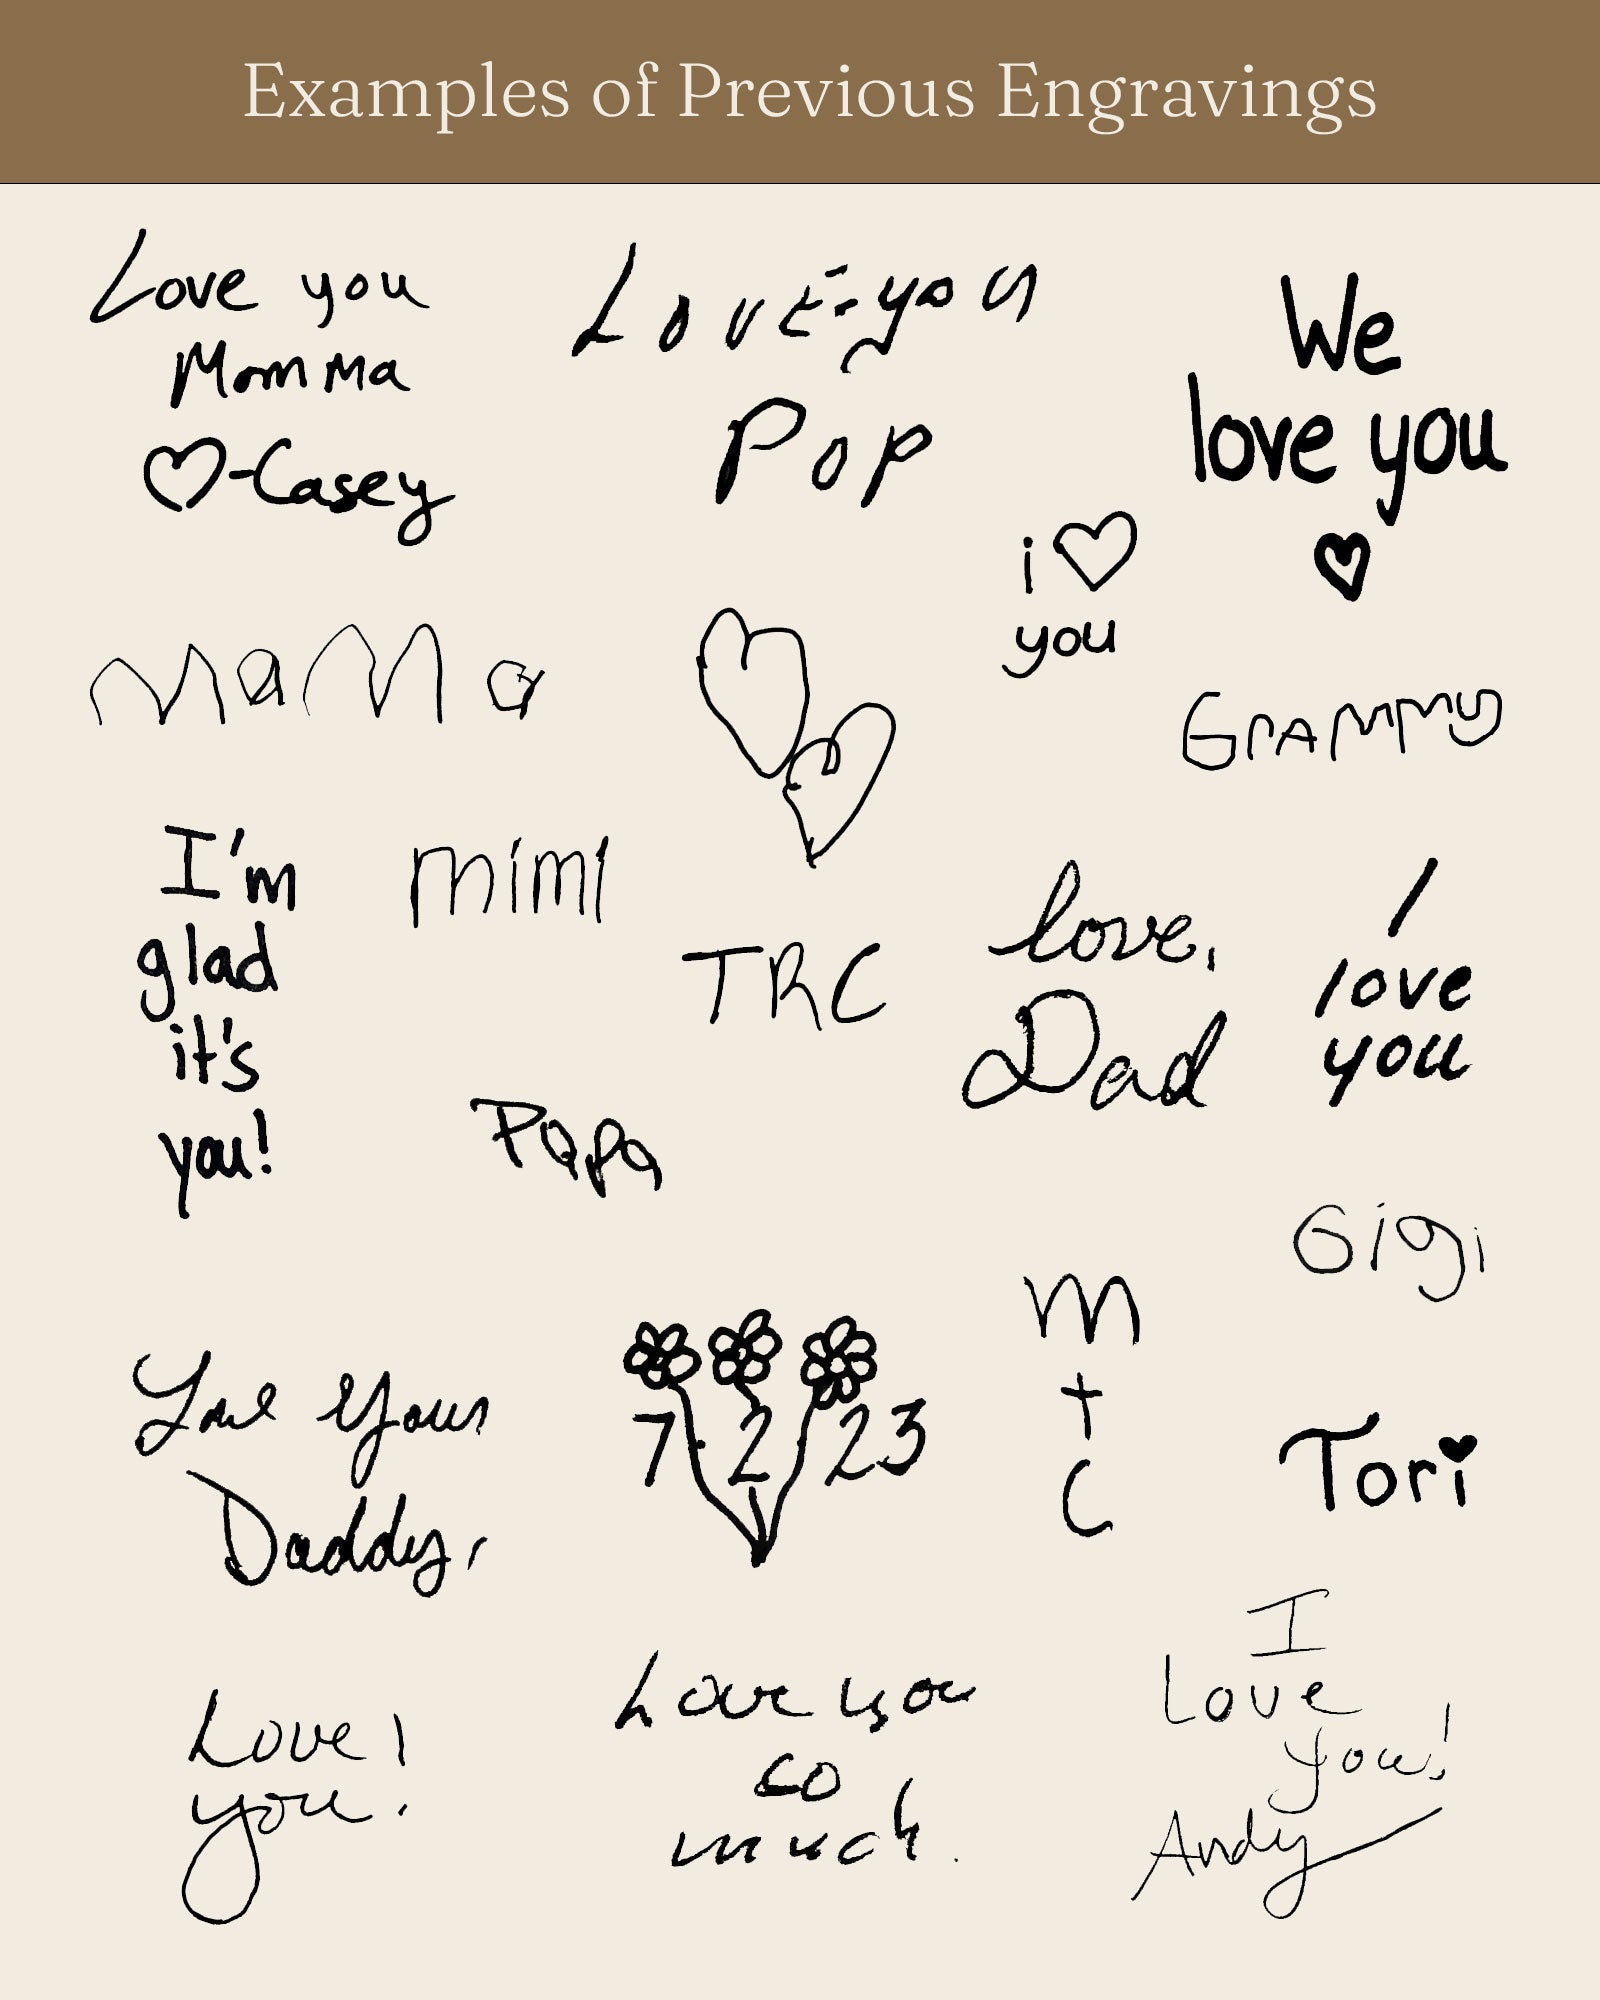 Examples of Previous Engravings
Love you
Momma
♡-Casey
Love you
Pop
We
love you
♥
i ♡
you
MaMa
GRAMMY
I'm
glad
it's
you!
mimi
TRC
love,
Dad
I
love
you
Papa
Gigi
Love You
Daddy,
7 2 23
M
+
C
Tori
Love!
you.
Love you
so
much.
I
Love
You!
Andy